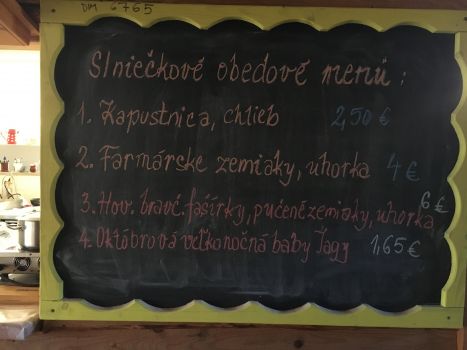 DM 6765
Slniečkové obedové menu :
1. Kapustnica, chlieb 2,50 €
2. Farmárske zemiaky, uhorka 4 €
3. Hov. bravč. fašírky, pučené zemiaky, uhorka 6 €
4. Októbrová veľkonočná baby Jagy 1,65 €